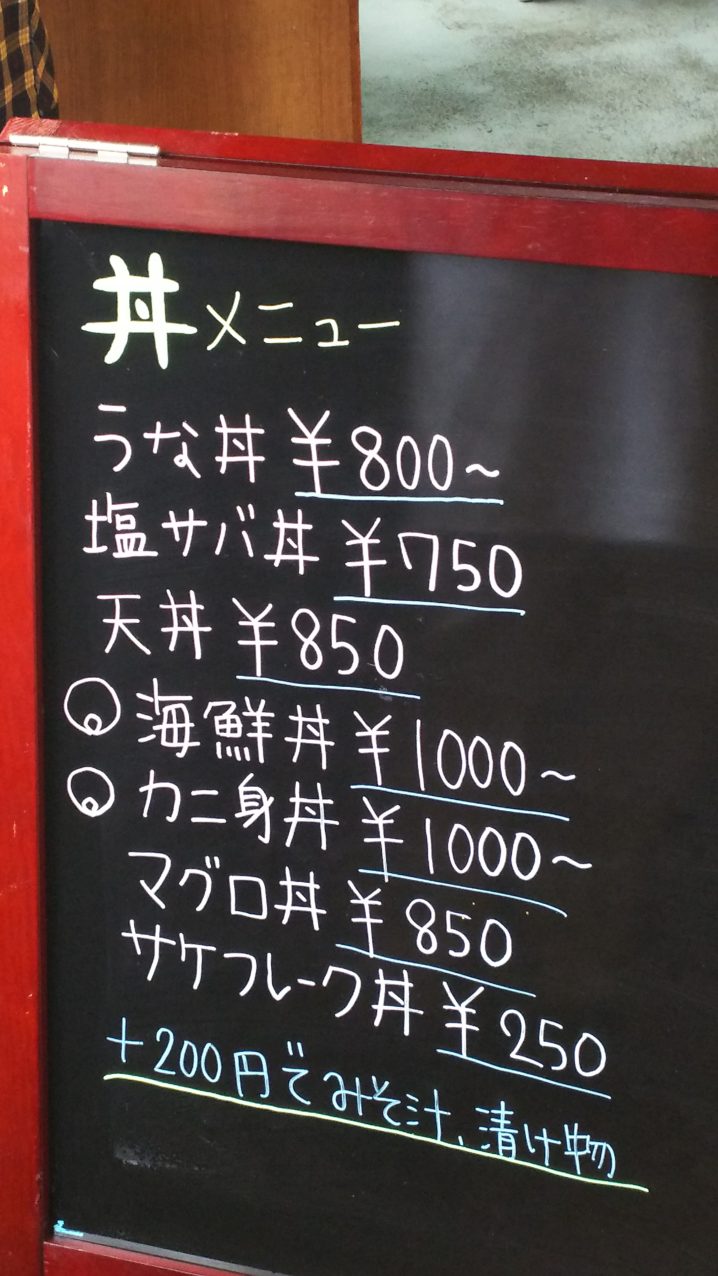 丼メニュー
うな丼 ¥800~
塩サバ丼 ¥750
天丼 ¥850
海鮮丼 ¥1000~
カニ身丼 ¥1000~
マグロ丼 ¥850
サケフレーク丼 ¥250
+200円でみそ汁、漬け物